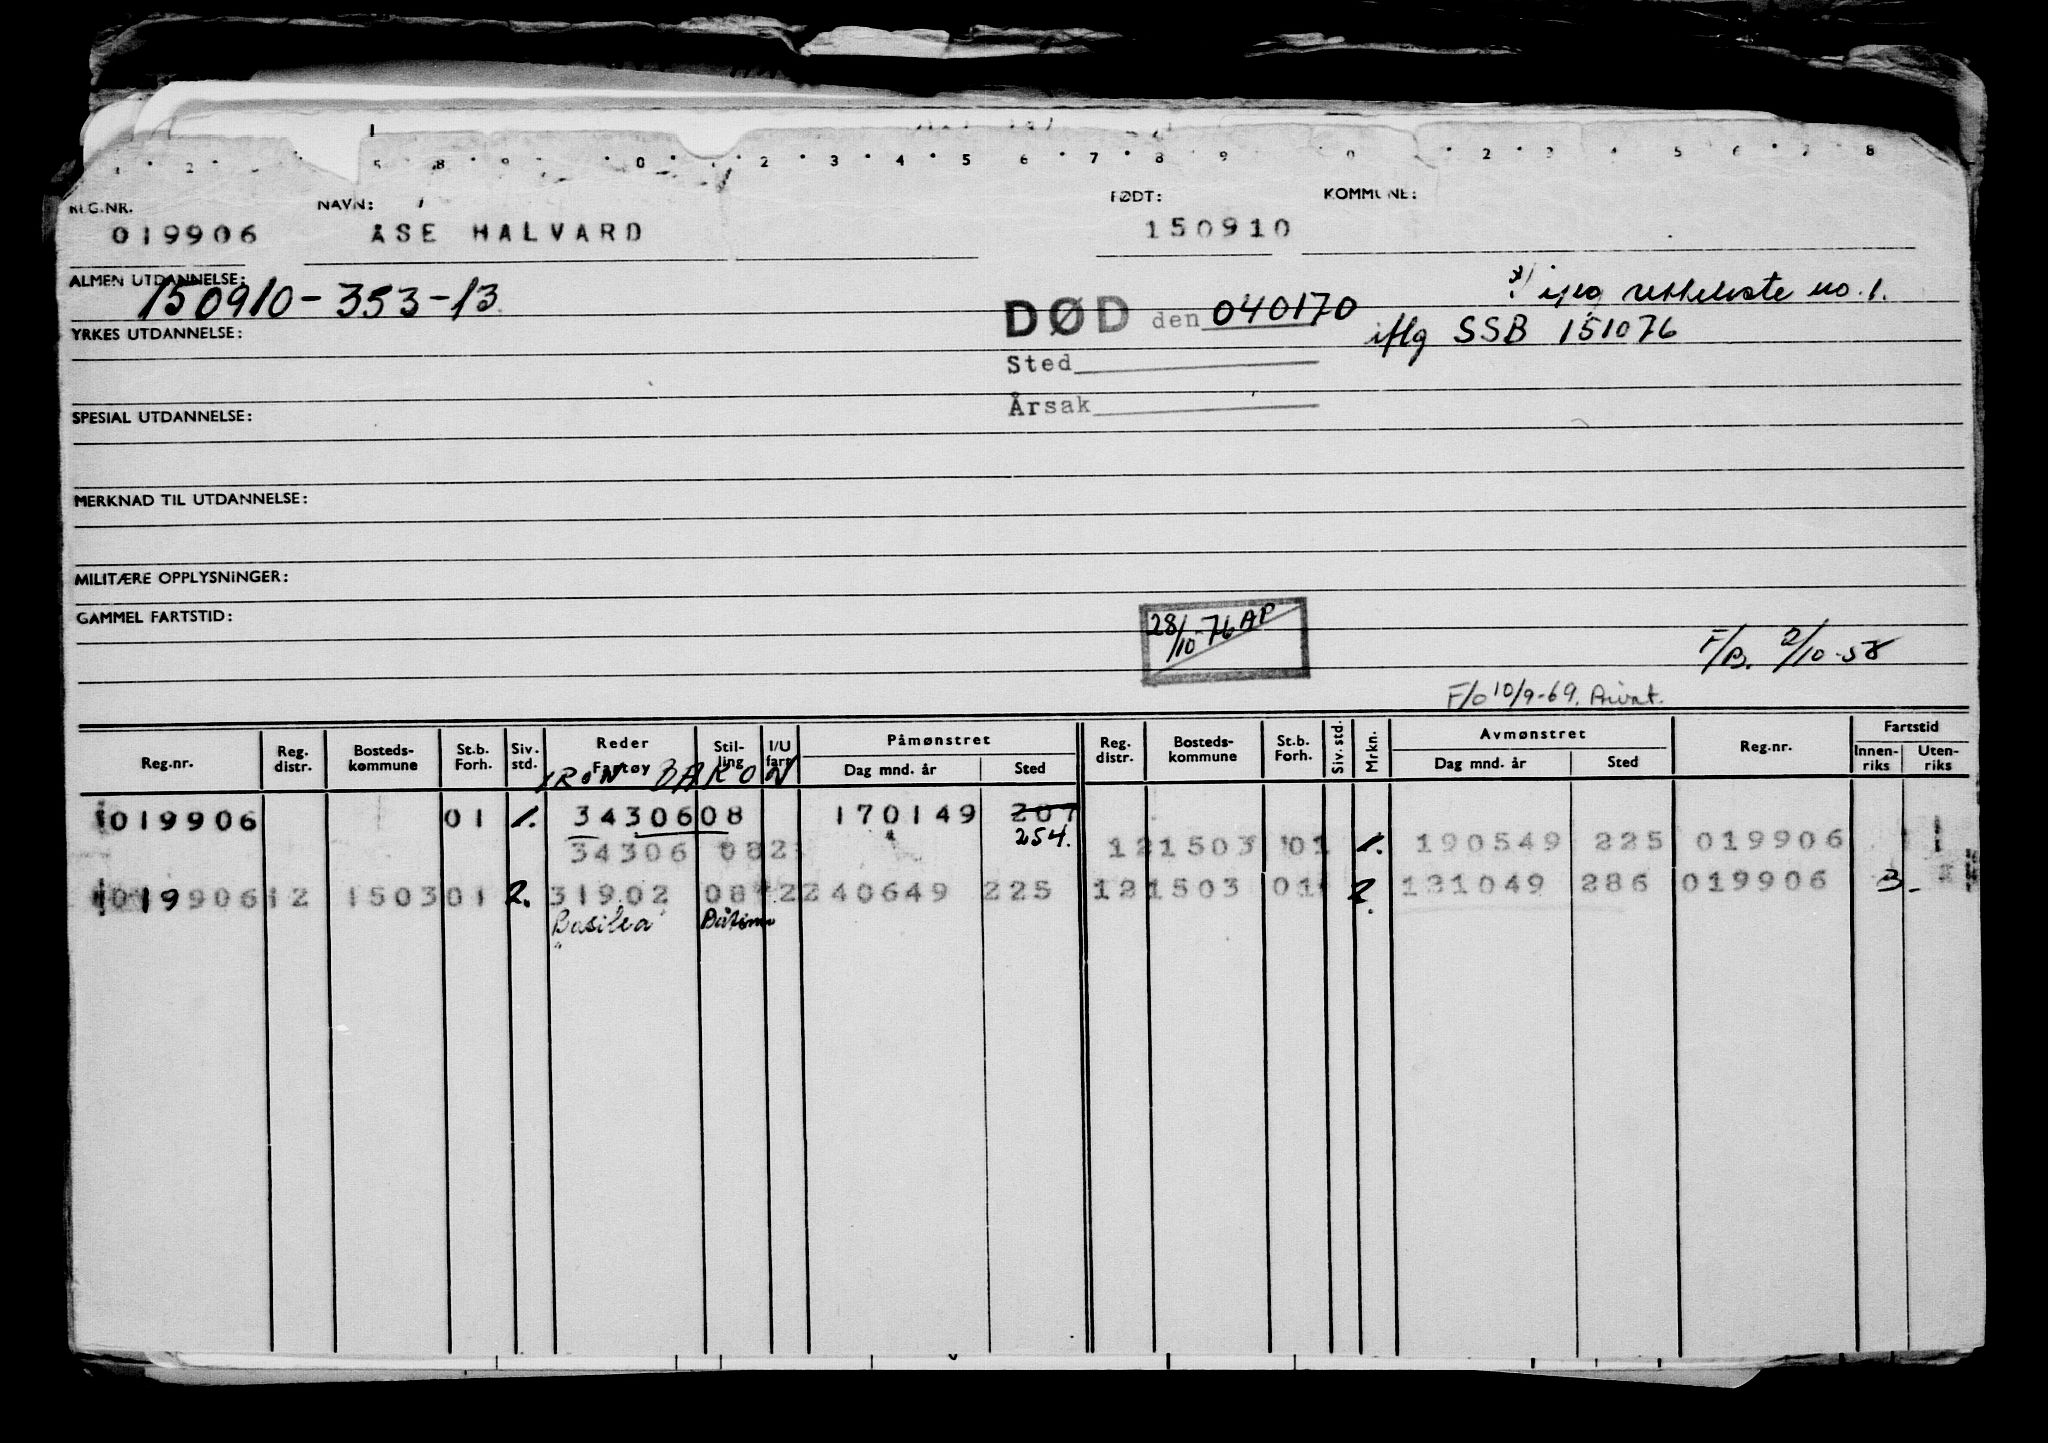 REG.NR. NAVN: FØDT: KOMMUNE:
019906 ÅSE HALVARD 150910
ALMEN UTDANNELSE:
150910-353-13
DØD den 040170
iflg SSB 151076
YRKES UTDANNELSE:
Sted
Årsak
SPESIAL UTDANNELSE:
MERKNAD TIL UTDANNELSE:
MILITÆRE OPPLYSNINGER:
GAMMEL FARTSTID:
28/10-76 AP
F/B. 2/10-58
F/O 10/9-69. Privat.
Reg.nr. Reg. distr. Bosteds-kommune St.b. Forh. Siv. std. Reder Fartøy Stil-ling I/U fart Påmønstret Dag mnd. år Sted Reg. distr. Bosteds-kommune St.b. Forh. Siv. std. Mrkn. Avmønstret Dag mnd. år Sted Reg.nr. Fartstid Innen-riks Uten-riks
IRON BARON
019906 01 1. 34306 08 170149 207
254.
34306 082 121503 01 1. 190549 225 019906
019906 12 1503 01 2. 31902 08 2 240649 225 121503 01 2. 131049 286 019906 3-
"Basilea" Båtsm